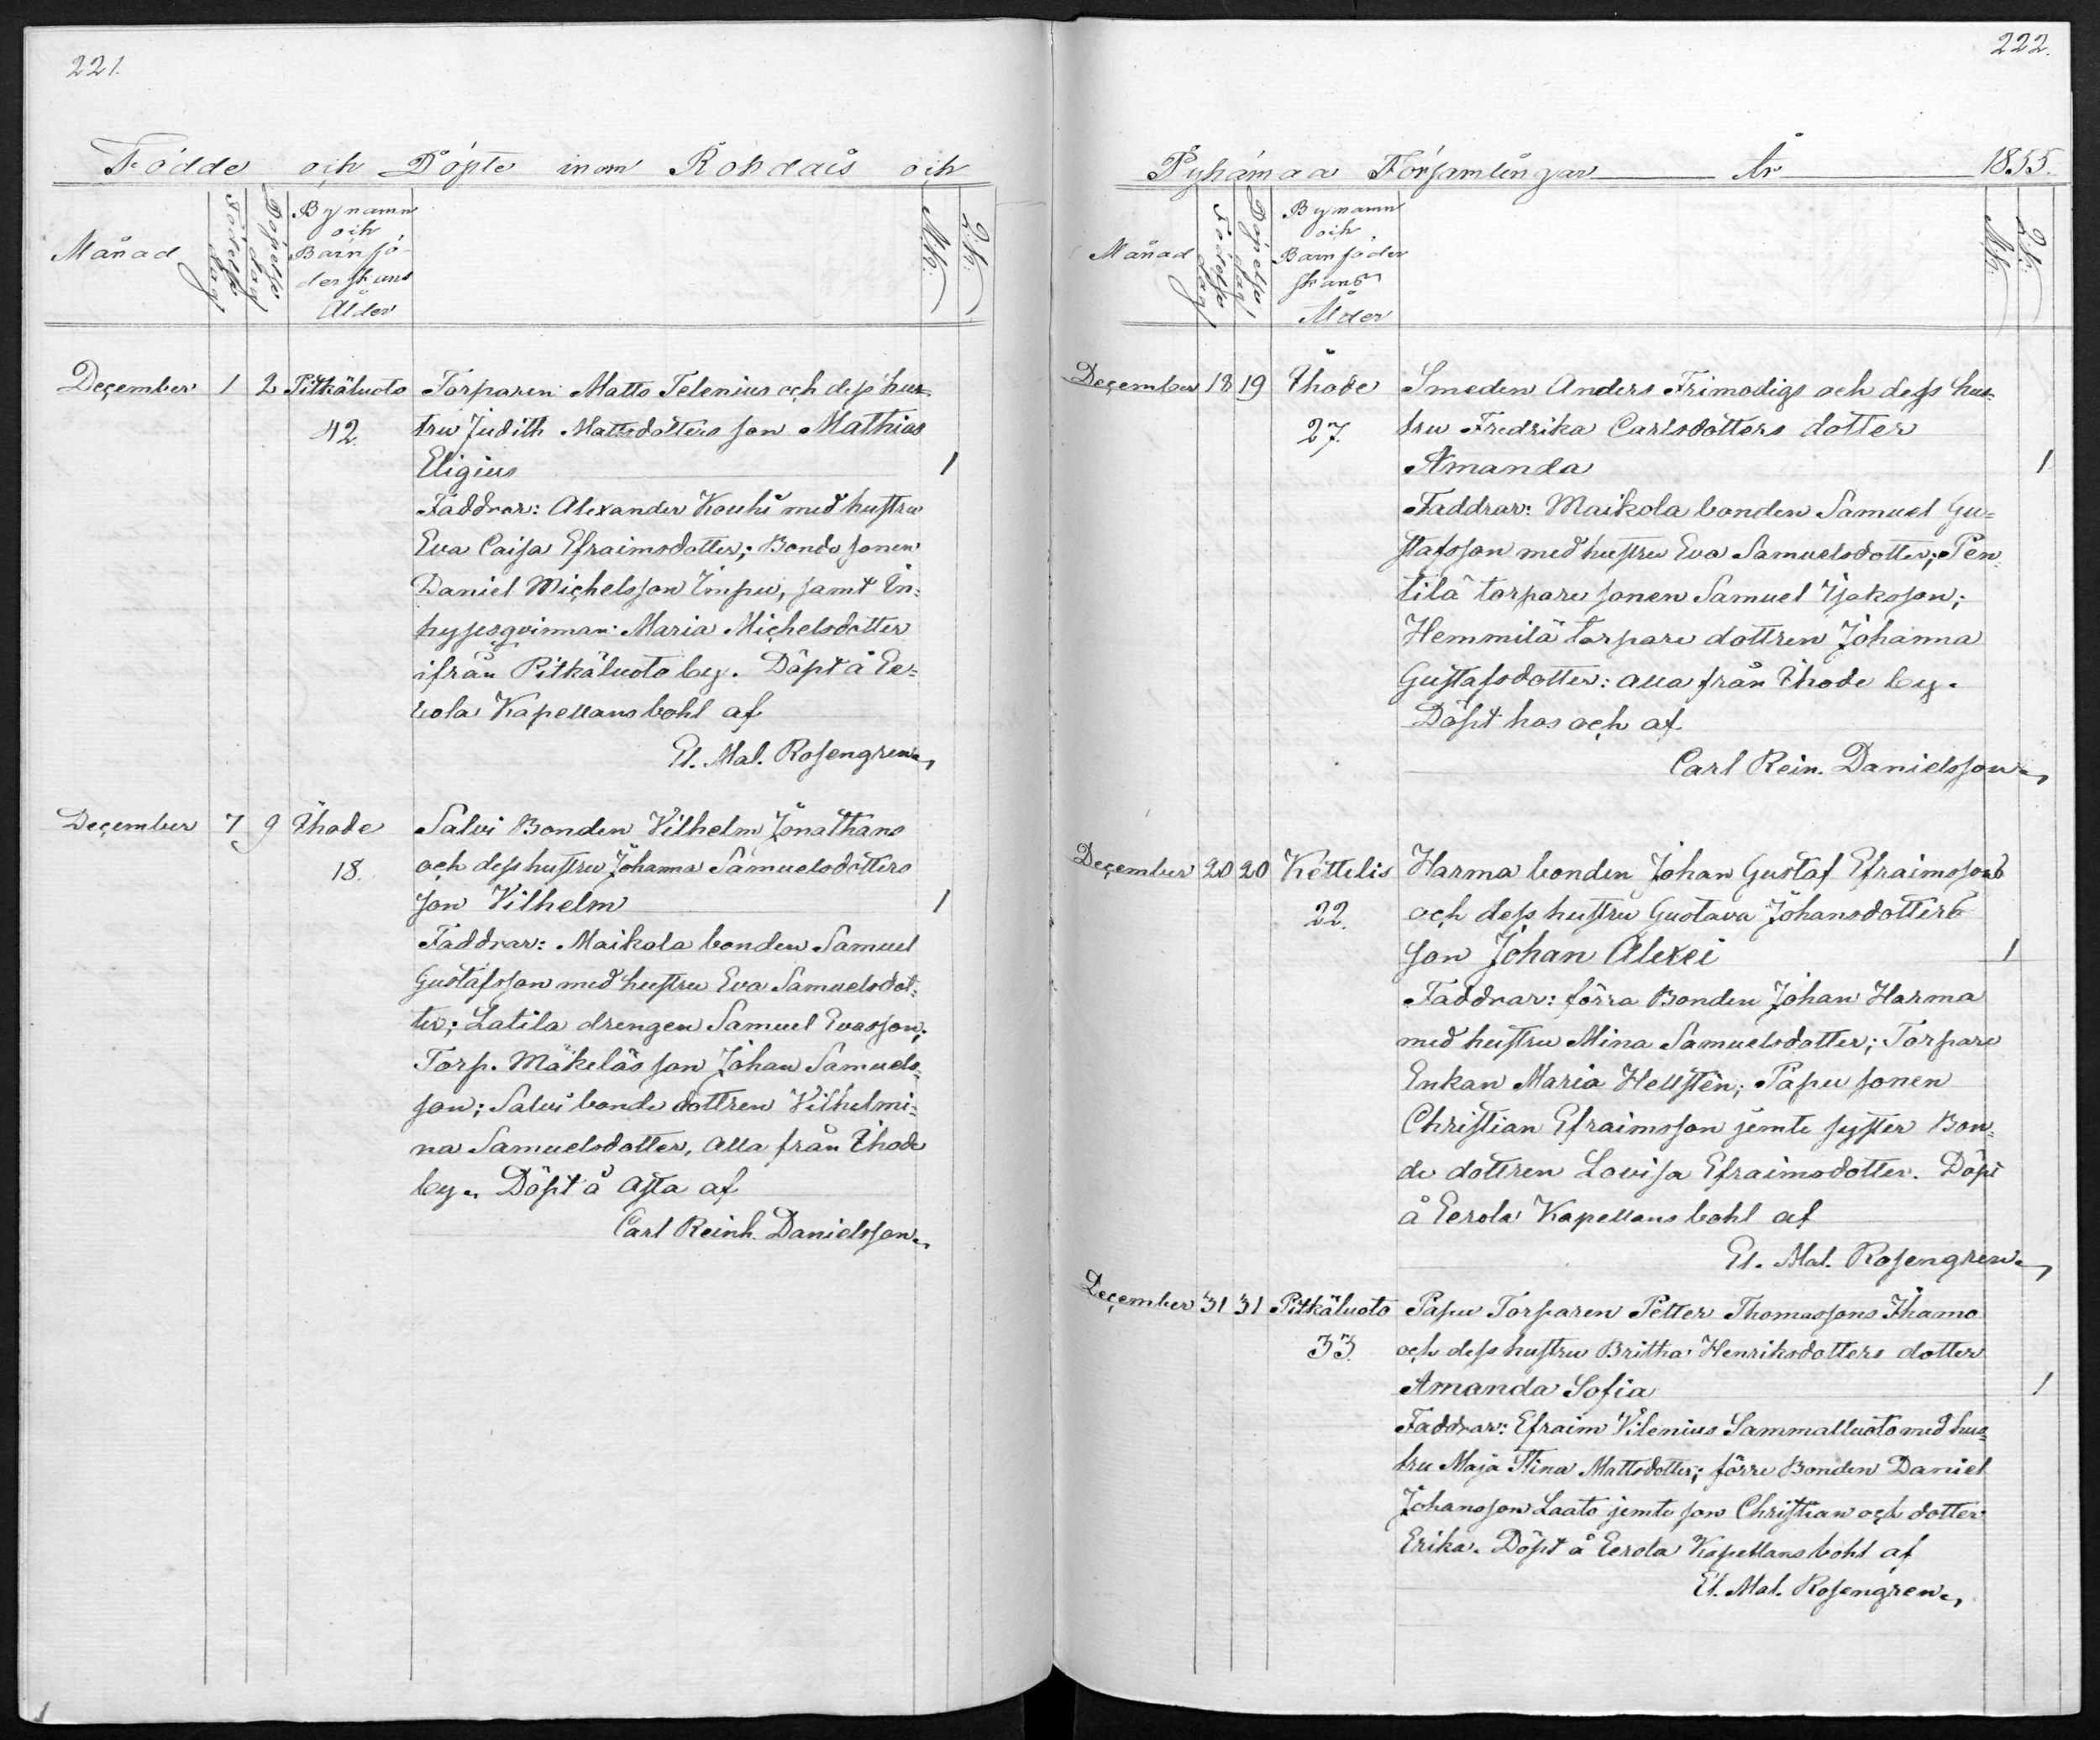 221.
Födde och Döpte inom Rohdais och
Månad
Födelse dag
Döpelse dag
Bynamn
och
Barnfö-
derskans
Ålder
M.k.
Q.k.
December 1 2 Pitkäluoto Torparen Matts Telenius och dess hus-
42. tru Judith Mattsdotters son Mathias
Eligius 1
Faddrar: Alexander Kouhi med hustru
Eva Caisa Efraimsdotter; Bonde sonen
Daniel Michelsson Impu, samt In-
hysesqvinnan: Maria Michelsdotter
ifrån Pitkäluoto by. Döpt å Ee-
rola Kapellans bohl af
El. Mal. Rosengren.
December 7 9 Ihode Salvi Bonden Vilhelm Jonathans
18. och dess hustru Johanna Samuelsdotters
son Vilhelm 1
Faddrar: Maikola bonden Samuel
Gustafsson med hustru Eva Samuelsdot-
ter; Latila drengen Samuel Evasson;
Torp. Mäkeläs son Johan Samuels-
son; Salvi bonde dottren Vilhelmi-
na Samuelsdotter, alla från Ihode
by. Döpt å Asta af
Carl Reinh. Danielsson.
222.
Pyhämaa Församlingar År 1855.
Månad
Födelse dag
Döpelse dag
Bynamn
och
Barnföder
skans
Ålder
M.k.
Q.k.
December 18 19 Ihode Smeden Anders Frimodigs och dess hus-
27. tru Fredrika Carlsdotters dotter
Amanda 1
Faddrar: Maikola bonden Samuel Gu-
stafsson med hustru Eva Samuelsdotter; Pen-
tilä torpare sonen Samuel Isaksson;
Hemmilä torpare dottren Johanna
Gustafsdotter: alla från Ihode by.
Döpt hos och af
Carl Rein. Danielsson.
December 20 20 Kettelis Harma bonden Johan Gustaf Efraimssons
22. och dess hustru Gustava Johansdotters
son Johan Alexei 1
Faddrar: förra Bonden Johan Harma
med hustru Mina Samuelsdotter; Torpare
Enkan Maria Hellsten; Papu sonen
Christian Efraimsson jemte syster Bon-
de dottren Lovisa Efraimsdotter. Döpt
å Eerola Kapellans bohl af
El. Mal. Rosengren.
December 31 31 Pitkäluoto Papu Torparen Petter Thomassons Ihamo
33. och dess hustru Britha Henriksdotters dotter
Amanda Sofia 1
Faddrar: Efraim Vilenius Sammalluoto med hus-
tru Maja Stina Mattsdotter; förre Bonden Daniel
Johansson Laato jemte son Christian och dotter
Erika. Döpt å Eerola Kapellans bohl af
El. Mal. Rosengren.